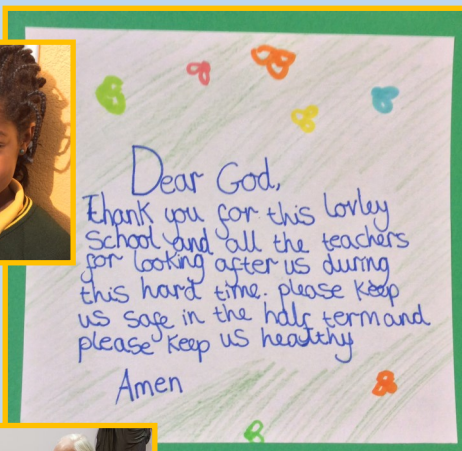 Dear God,
Thank you for this Lovley
School and all the teachers
for looking after us during
this hard time. please keep
us safe in the half term and
please keep us healthy
Amen